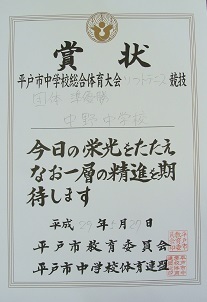 賞状
平戸市中学校総合体育大会ソフトテニス競技
団体 準優勝
中野中学校
今日の栄光をたたえ
なお一層の精進を期
待します
平成29年 月27日
平戸市教育委員会
平戸市中学校体育連盟